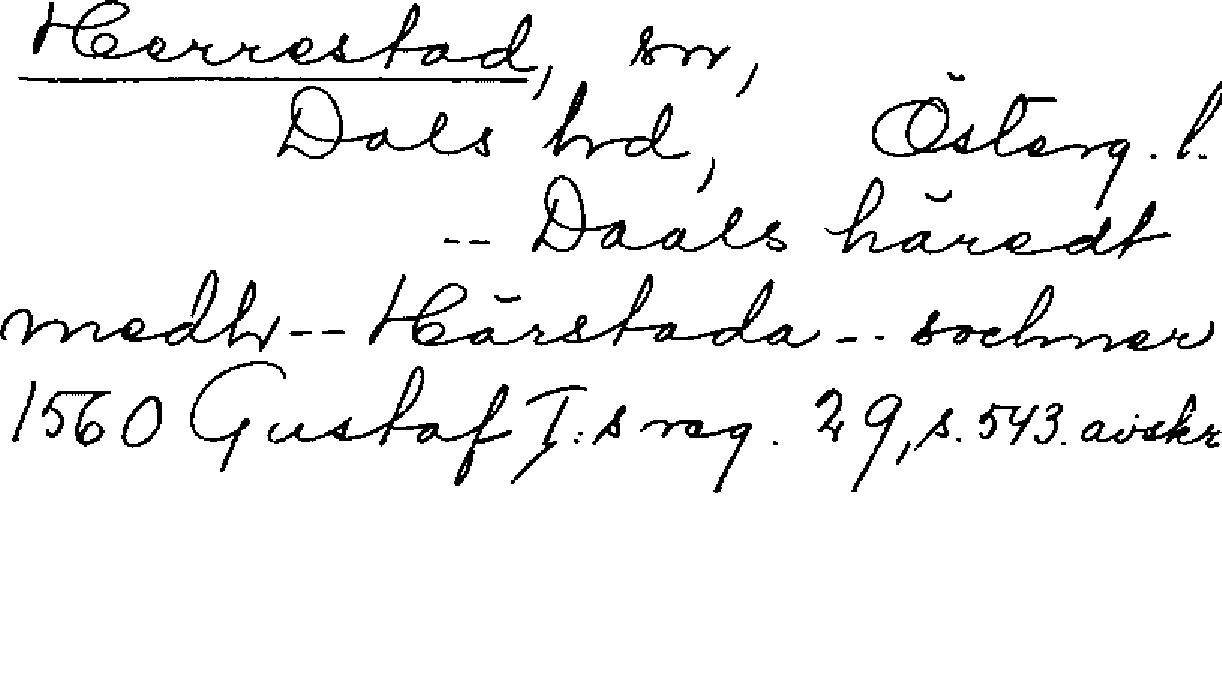 Herrestad, sn,
Dals hd, Österg. l.
-- Daals häredt
medh -- Härstada -- sochner
1560 Gustaf I:s reg. 29, s. 543. avskr